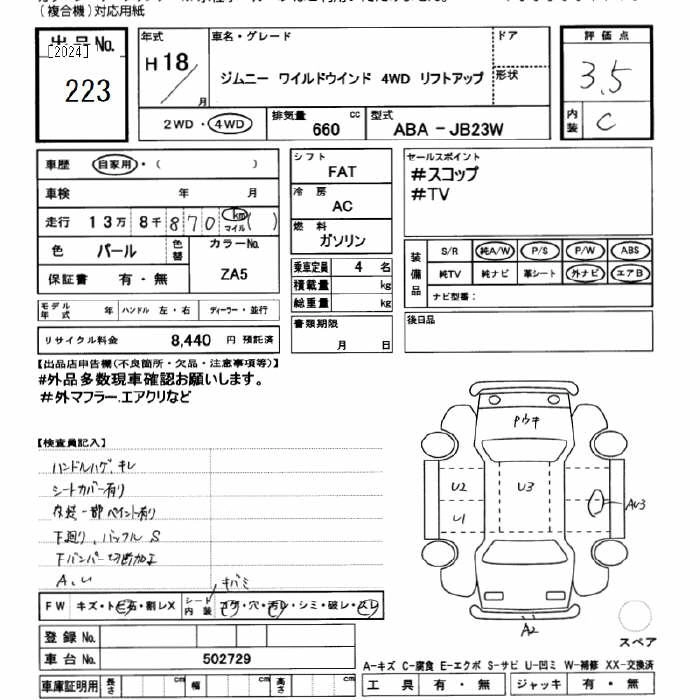 (複合機)対応用紙
出品No.
[2024]
223
年式
H18/
月
車名・グレード
ジムニー ワイルドウインド 4WD リフトアップ
ドア
形状
評価点
3.5
内装
C
2WD・4WD
排気量
cc
660
型式
ABA-JB23W
車歴
自家用・( )
車検
年 月
走行
13万 8千 870 km マイル ( )
色
パール
色替
カラーNo.
ZA5
保証書
有・無
モデル年式
年
ハンドル
左・右
ディーラー・並行
リサイクル料金
8,440 円 預託済
シフト
FAT
冷房
AC
燃料
ガソリン
乗車定員
4 名
積載量
kg
総重量
kg
書類期限
月 日
セールスポイント
#スコップ
#TV
装備品
S/R 純A/W P/S P/W ABS
純TV 純ナビ 革シート 外ナビ エアB
ナビ型番:
後日品
【出品店申告欄(不良箇所・欠品・注意事項等)】
#外品多数現車確認お願いします。
#外マフラー.エアクリなど
【検査員記入】
ハンドルハゲ、キレ
シートカバー有り
内装一部ペイント有り
下廻り、バッフル S
Fバンパー切断加工
A、U
キバミ
FW
キズ・トビ石・割レX
シート内装
コゲ・穴・汚レ・シミ・破レ・スレ
登録No.
車台No.
502729
車庫証明用
長さ
cm
幅
cm
高さ
cm
Pウキ
U2
U3
U1
AU3
A2
スペア
A-キズ C-腐食 E-エクボ S-サビ U-凹ミ W-補修 XX-交換済
工具
有・無
ジャッキ
有・無